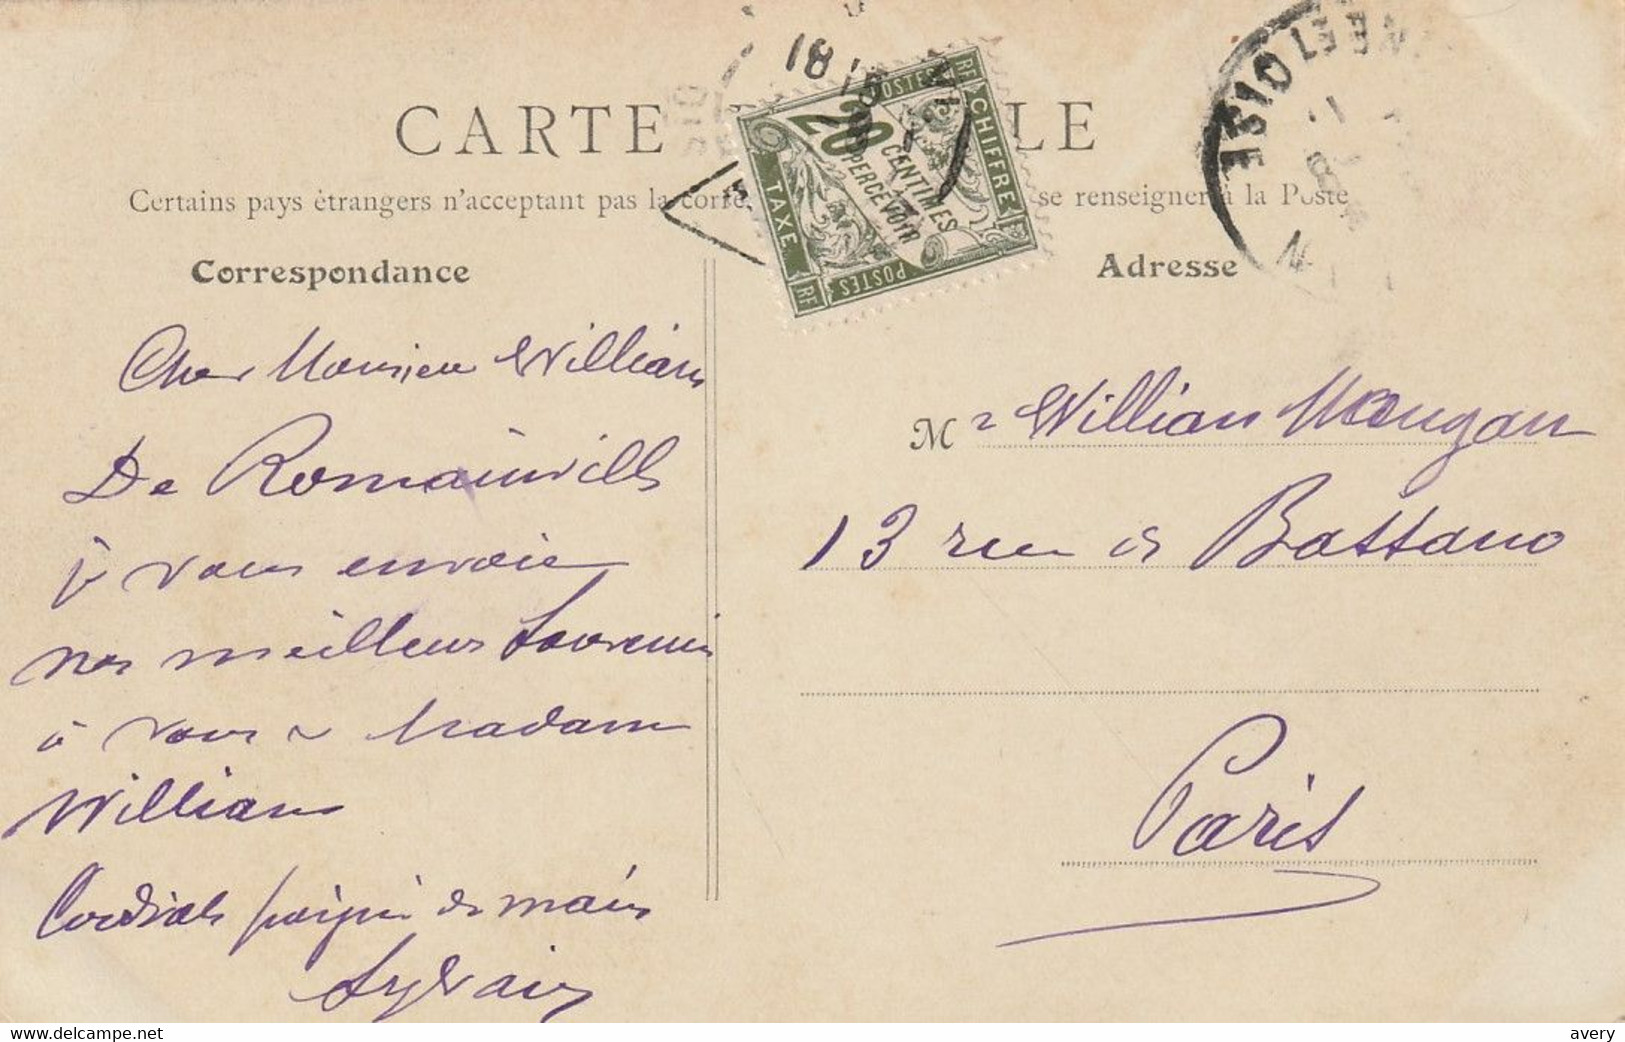 CARTE LE
Certains pays étrangers n'acceptant pas la corre se renseigner à la Poste
Correspondance
Adresse
RF POSTES CHIFFRE
20 CENTIMES
A PERCEVOIR
TAXE
POSTES RF
18
OISE
Cher Monsieur William
De Romainville
je vous envoie
nos meilleurs Souvenirs
à vous & Madame
William
Cordiale poignée de main
Sylvain
Mr William Mougan
13 rue de Bassano
Paris
www.delcampe.net
avery